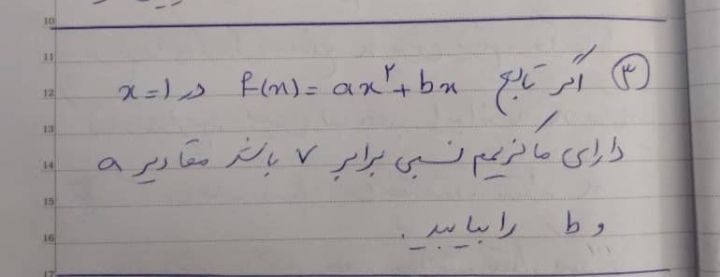 10
11
۳ اگر تابع f(x) = ax² + bx در x=1
12
13
دارای ماکزیمم نسبی برابر ۷ باشد مقادیر a
14
15
و b را بیابید.
16
17